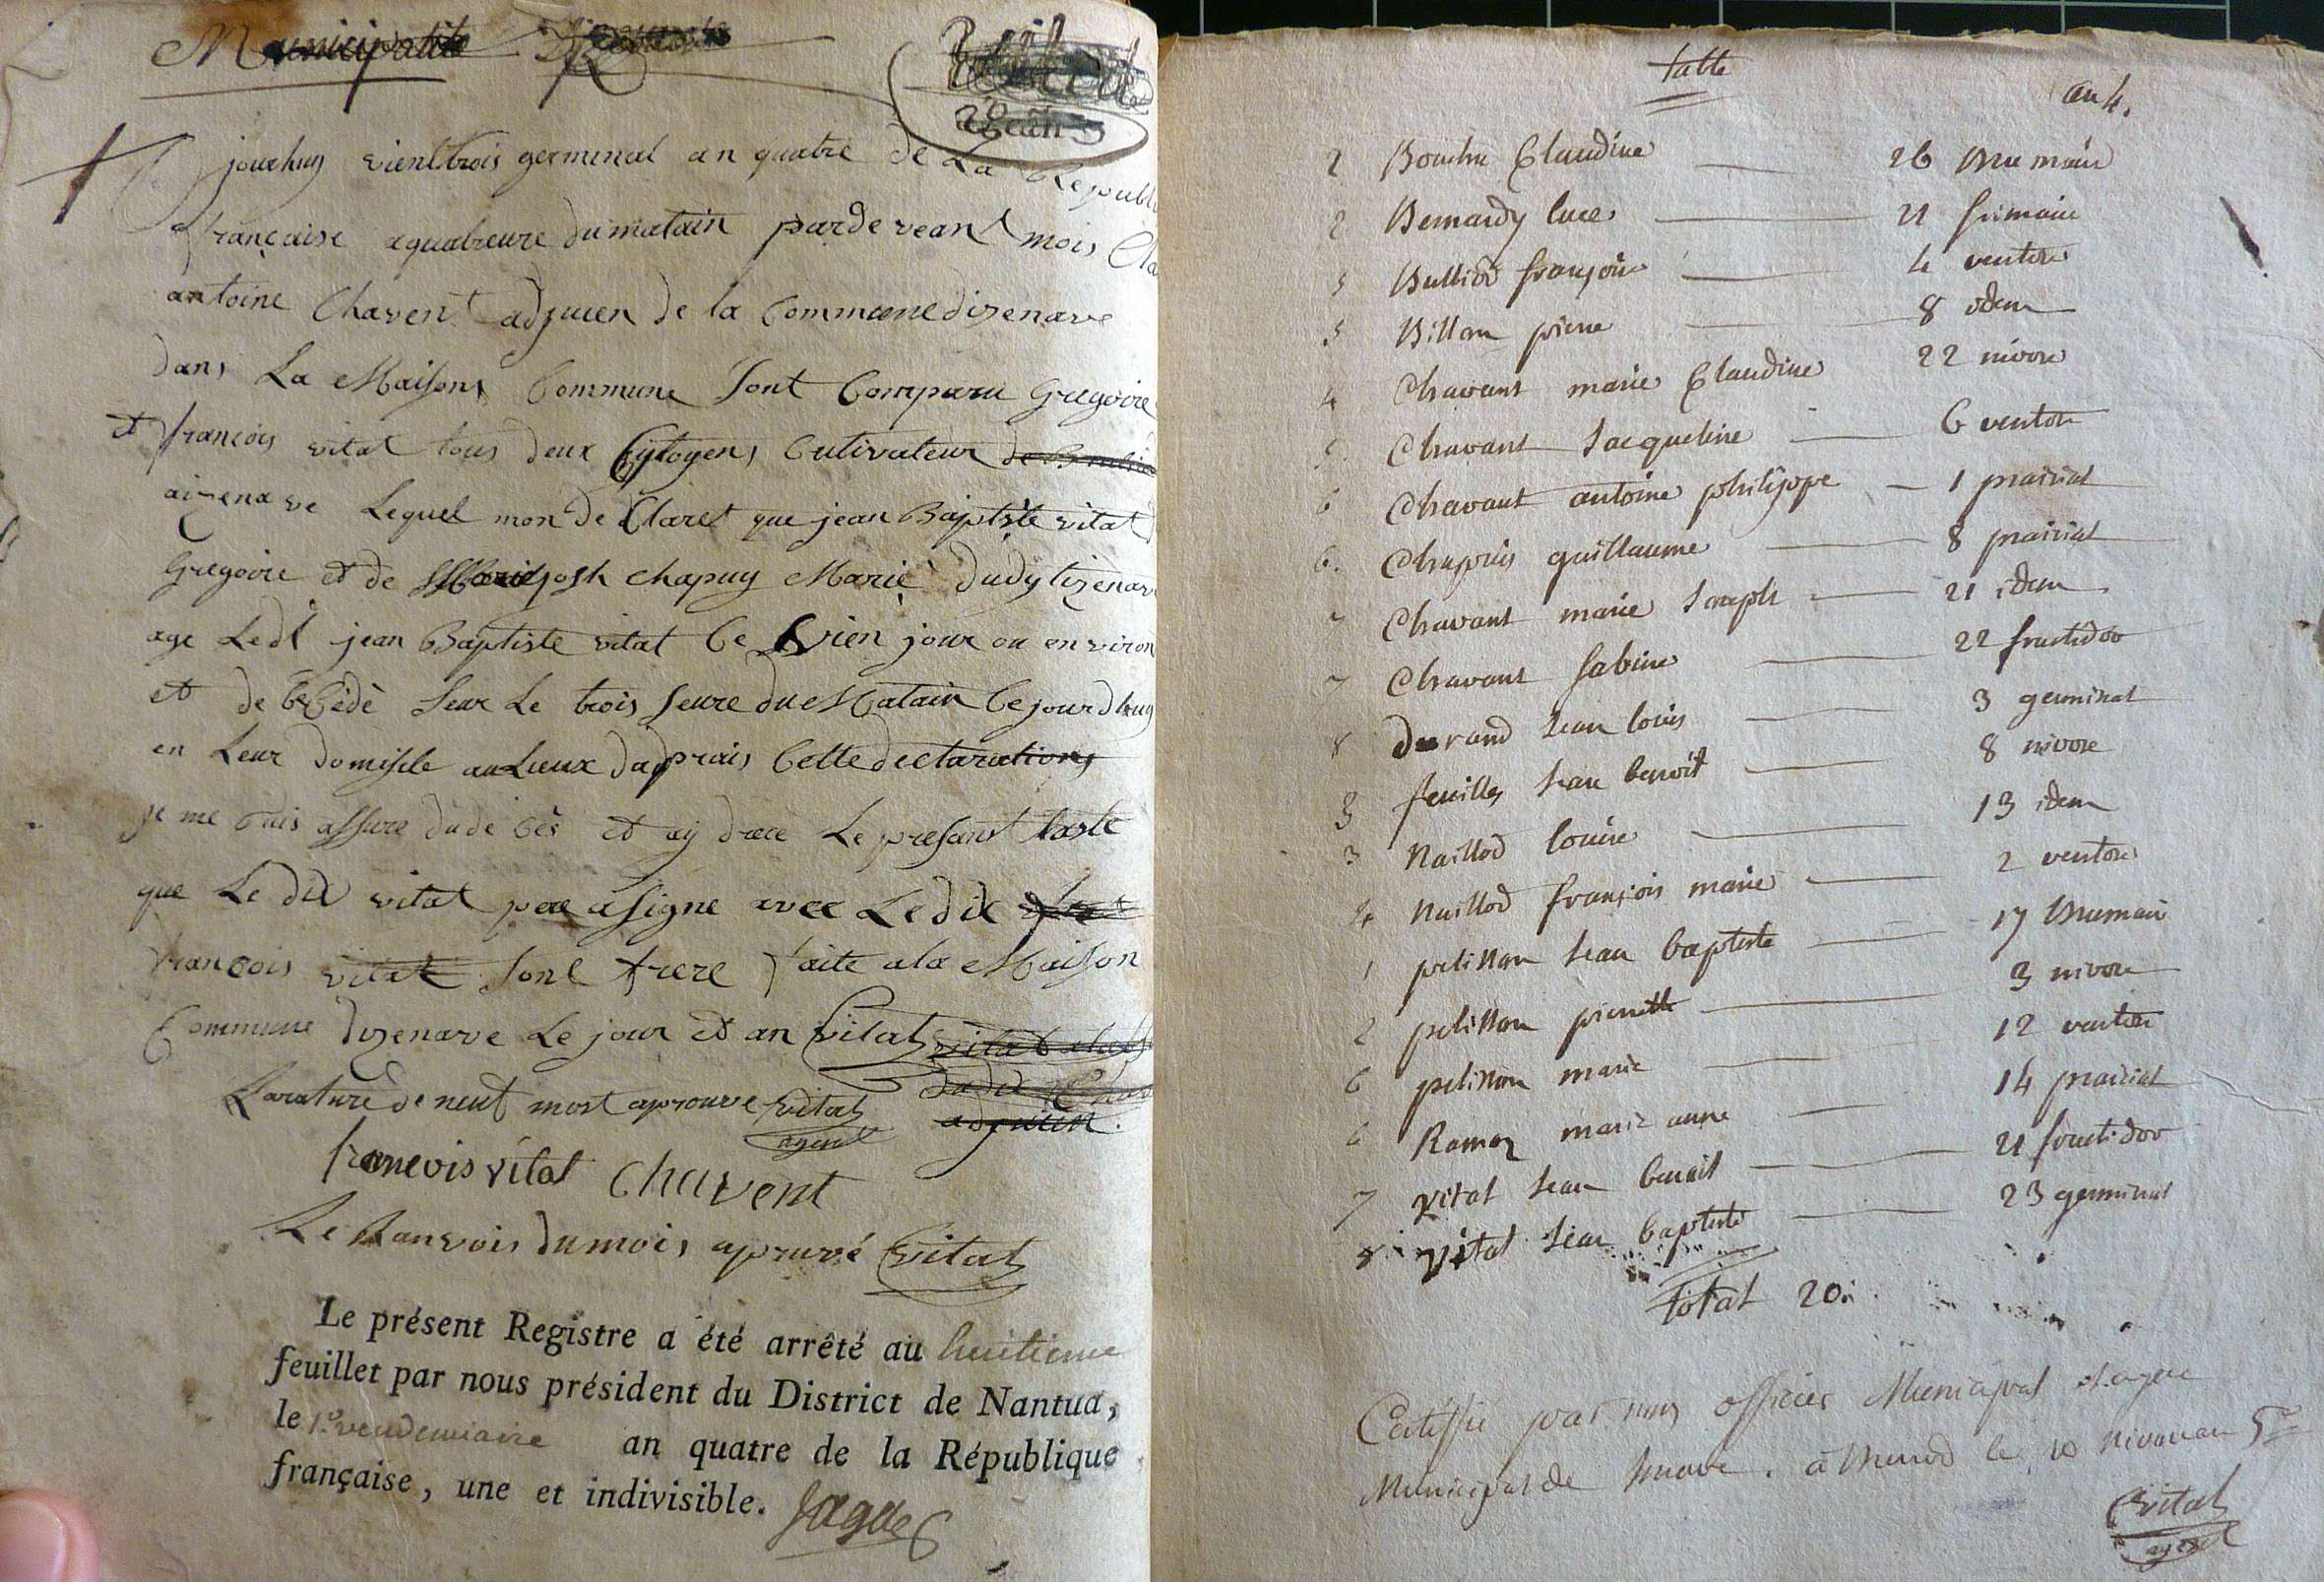 Municipalité
jourhuy vienttrois germinal an quatre de La Republi
française aquatreure du matain pardeveant mois Cla
antoine Chavent adjuien de la Commune dizenave
dans La Maisons Commune sont Comparu Gregoire
et françois vital tous deux Cytoyens Cutivateur
aizenave Lequel mon de Claret que jean Baptiste vital
Gregoire et de josh chapuy Marie dudy tizenav
age Ledt jean Baptiste vital be vien jour ou environ
et de bébédè seur Le trois seure du Matain be jourdhuy
en Leur domisile au Lieux daprais bette declarations
je me suis assure du de bès et ay drece Le presant laste
que Le dit vital pere a signe avec Le dit
francois vital sont frere faite ala Maison
Commune dizenave Le jour et an vital
Larature de neuf most aprouve vital
agent
francois vital Chavent
Le Ranvois du mois apruvé vital
Le présent Registre a été arrêté au huitieme
feuillet par nous président du District de Nantua,
le 1er vendemiaire an quatre de la République
française, une et indivisible.
table
an 4.
2 Bouchu Claudine 26 brumair
2 Bernardy luce 21 frimaire
5 Bulliod françoise 4 ventose
5 Billon pierre 8 idem
4 Chavant marie Claudine 22 nivose
5. Chavant Jacqueline 6 ventose
6 Chavant antoine philippe 1 prairial
6. Chapuis guillaume 8 prairial
7 Chavant marie Joseph 21 idem
7 Chavant Sabine 22 fructidor
8 durand Jean louis 3 germinal
3 feuilles Jean benoit 8 nivose
3 Naillod louise 13 idem
4 Naillod françois marie 2 ventose
1 pelisson Jean baptiste 17 brumair
2 pelisson pierrette 3 nivose
6 pelisson marie 12 ventose
6 Ramoz marie anne 14 prairial
7 Vital Jean benoit 21 fructidor
8 Vital Jean baptiste 23 germinal
total 20.
Certiffié par nous officier Municipal et agen
Municipal de le 10 nivose an 5me
vital
agent